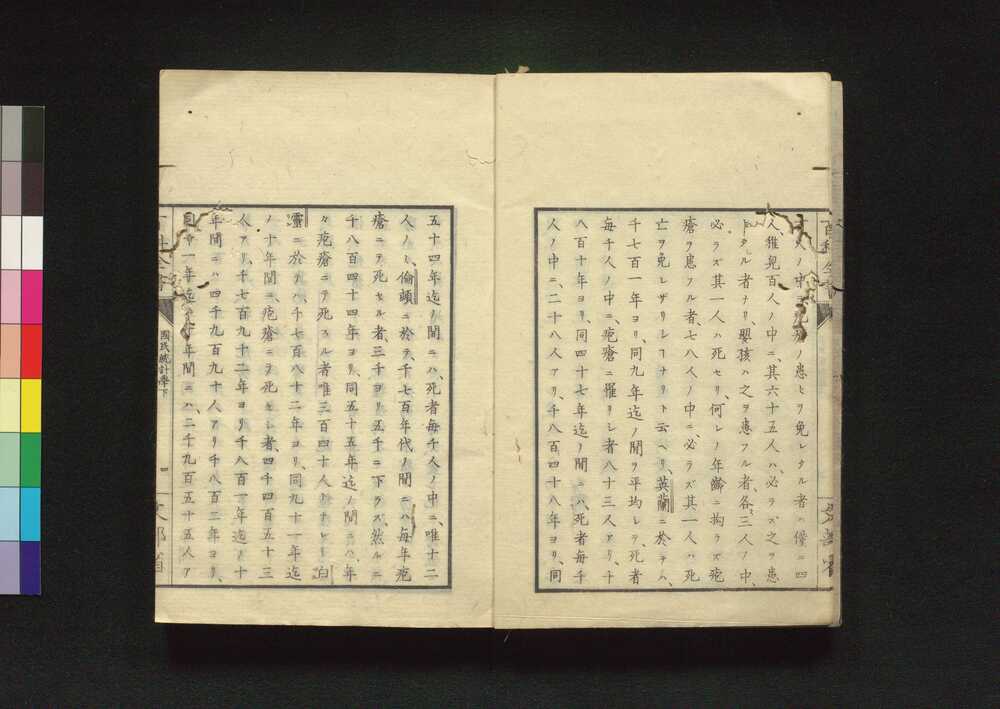 百人ノ中ニ疱瘡ノ患ヒヲ免レタル者ハ僅ニ四
人、稚兒百人ノ中ニ、其六十五人ハ、必ラズ之ヲ患
ヒタル者ナリ嬰孩ハ之ヲ患フル者、各三人ノ中、
必ラズ其一人ハ死セリ、何レノ年齡ニ拘ラズ疱
瘡ヲ患フル者、七八人ノ中ニ、必ラズ其一人ハ死
亡ヲ免レザリシヿナリト云ヘリ、英蘭ニ於テハ、
千七百一年ヨリ、同九年迄ノ間ヲ平均シテ死者
每千人ノ中ニ、疱瘡ニ罹リシ者八十三人アリ、千
八百十年ヨリ、同四十七年迄ノ間ニハ、死者每千
人ノ中ニ、二十八人アリ、千八百四十八年ヨリ、同
五十四年迄ノ間ニハ、死者每千人ノ中ニ、唯十二
人ノミ、倫頓ニ於テ、千七百年代ノ間ニハ每年疱
瘡ニテ死セル者、三千ヨリ五千ニ下ラズ、然ルニ
千八百四十四年ヨリ、同五十五年迄ノ間ニハ、年
々疱瘡ニテ死スル者唯三百四十人トナレリ白
靈ニ於テハ、千七百八十二年ヨリ、同九十一年迄
ノ十年間ニ、疱瘡ニテ死セシ者、四千四百五十三
人アリ、千七百九十二年ヨリ千八百一年迄ノ十
年間ニハ四千九百九十人アリ千八百二年ヨリ、
同十一年迄ノ十年間ニハ、二千九百五十五人ア
百科全書
國民統計學下
四
文部省